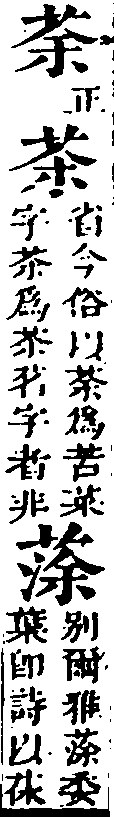 荼
正
茶
省今俗以荼爲苦葉
字茶爲茶茗字者非
蒤
別爾雅蒤委
葉即詩以茠